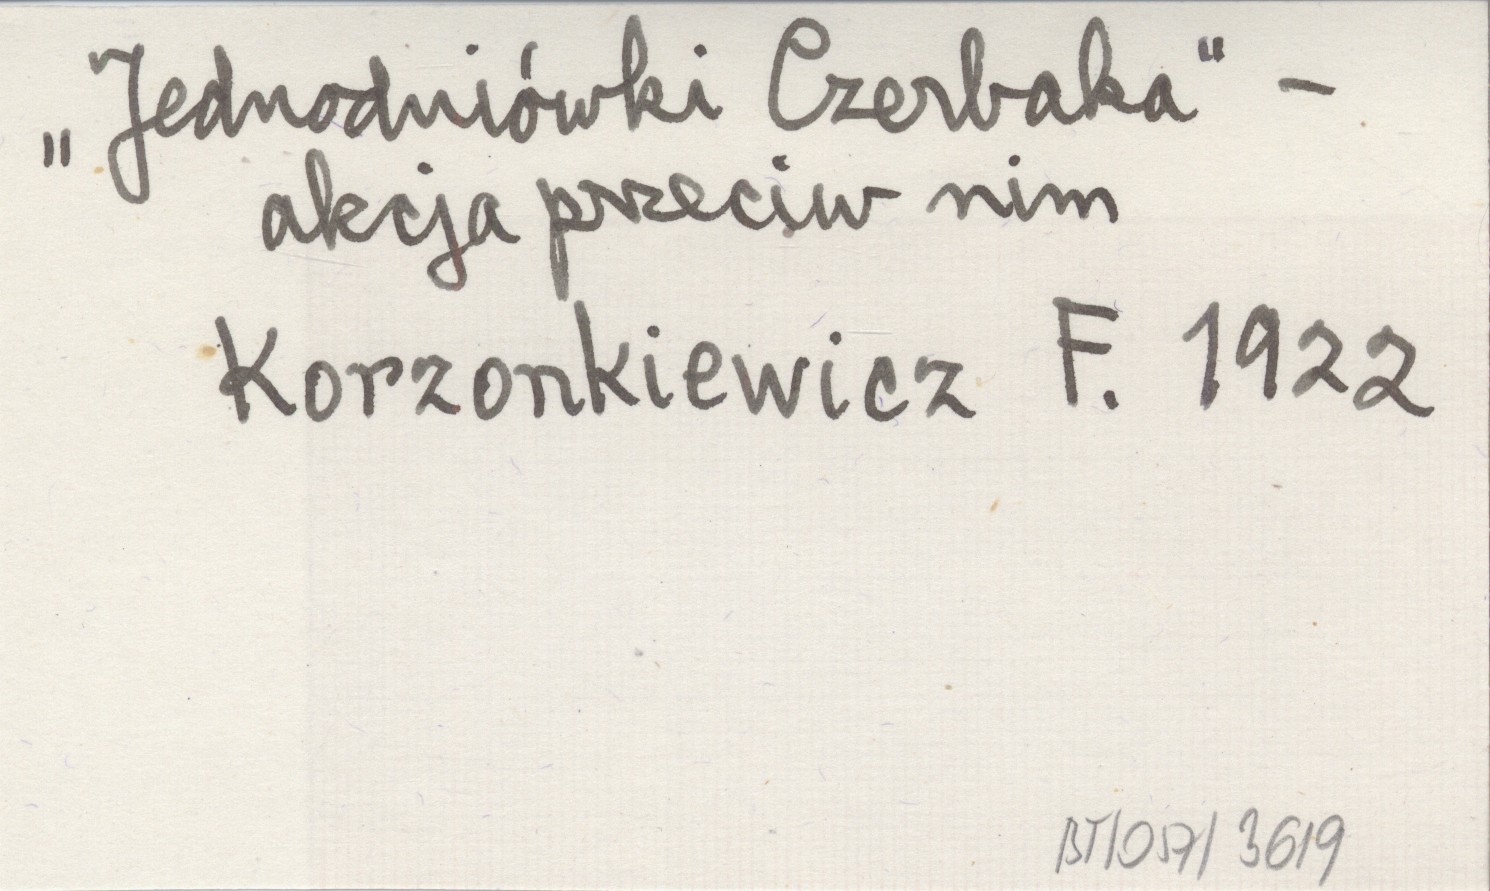 „Jednodniówki Czerbaka“ –
akcja przeciw nim
Korzonkiewicz F. 1922
BT/057/3619